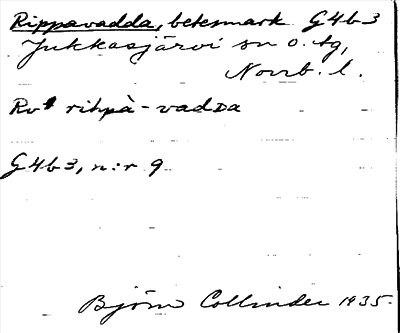 Rippavadda, betesmark G4b3
Jukkasjärvi sn o. tg,
Norrb. l.
rihpà-vadda
G4b3, n:r 9
Björn Collinder 1935.